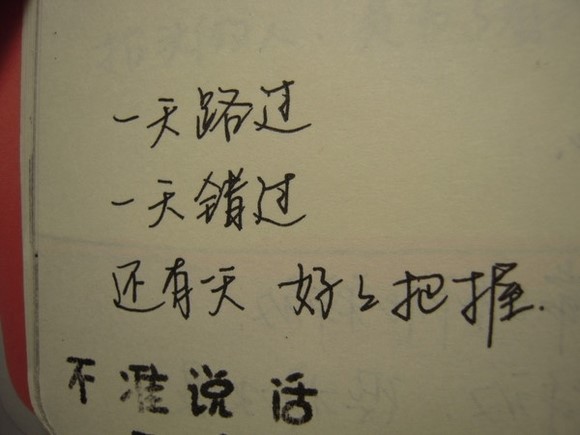 一天路过
一天错过
还有一天 好々把握.
不准说话